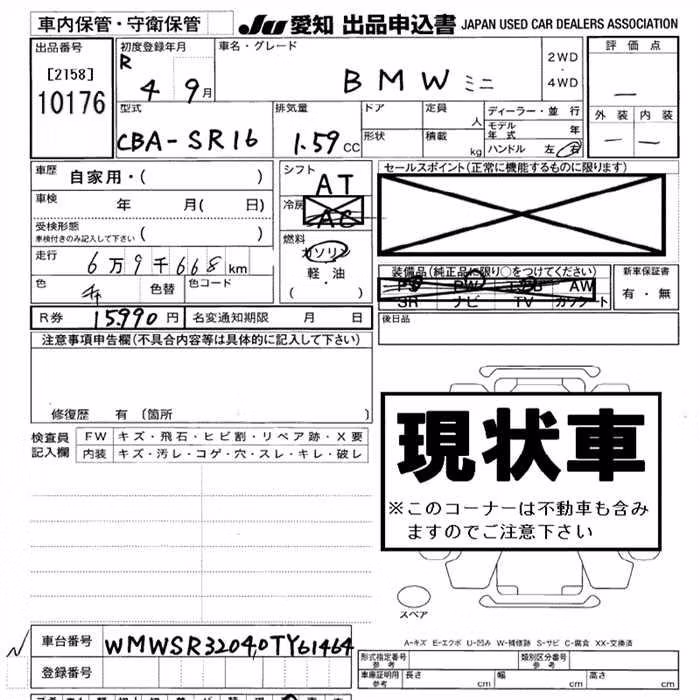 車内保管・守衛保管
JU 愛知 出品申込書 JAPAN USED CAR DEALERS ASSOCIATION
出品番号
[2158]
10176
初度登録年月
R 4 9月
車名・グレード
BMW ミニ
2WD
・
4WD
評価点
—
外装 内装
— —
型式
CBA-SR16
排気量
1.59 CC
ドア
形状
定員 人
積載 kg
ディーラー・並行
モデル年式 年
ハンドル 左 右
車歴 自家用・( )
車検 年 月( 日)
受検形態
車検付きのみ記入して下さい ( )
走行 6万9千668km
色 赤 色替 色コード
R券 15,990円 名変通知期限 月 日
シフト
AT
冷房
AC
燃料
ガソリン
軽・油
・
( )
セールスポイント(正常に機能するものに限ります)
装備品(純正品に限り○をつけてください)
PS PW エアB AW
SR ナビ TV カセット
新車保証書
有・無
後日品
注意事項申告欄(不具合内容等は具体的に記入して下さい)
修復歴 有 [箇所 ]
検査員記入欄
FW キズ・飛石・ヒビ割・リペア跡・X要
内装 キズ・汚レ・コゲ・穴・スレ・キレ・破レ
現状車
※このコーナーは不動車も含み
ますのでご注意下さい
スペア
A-キズ E-エクボ U-凹み W-補修跡 S-サビ C-腐食 XX-交換済
車台番号 WMWSR32040TY61464
登録番号
形式指定番号 参考 類別区分番号 参考
車庫証明用 参考 長さ cm 幅 cm 高さ cm